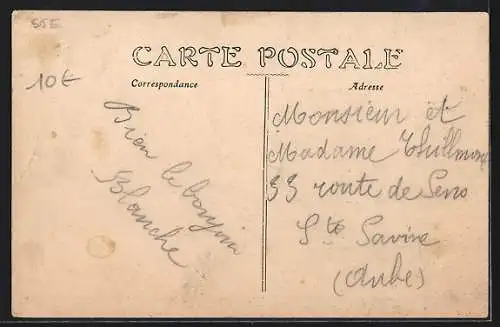 55E
10€
CARTE POSTALE
Correspondance
Adresse
Bien le bonjour
Blanche
Monsieur et
Madame Thullmont
33 route de Sens
Ste Savine
(Aube)